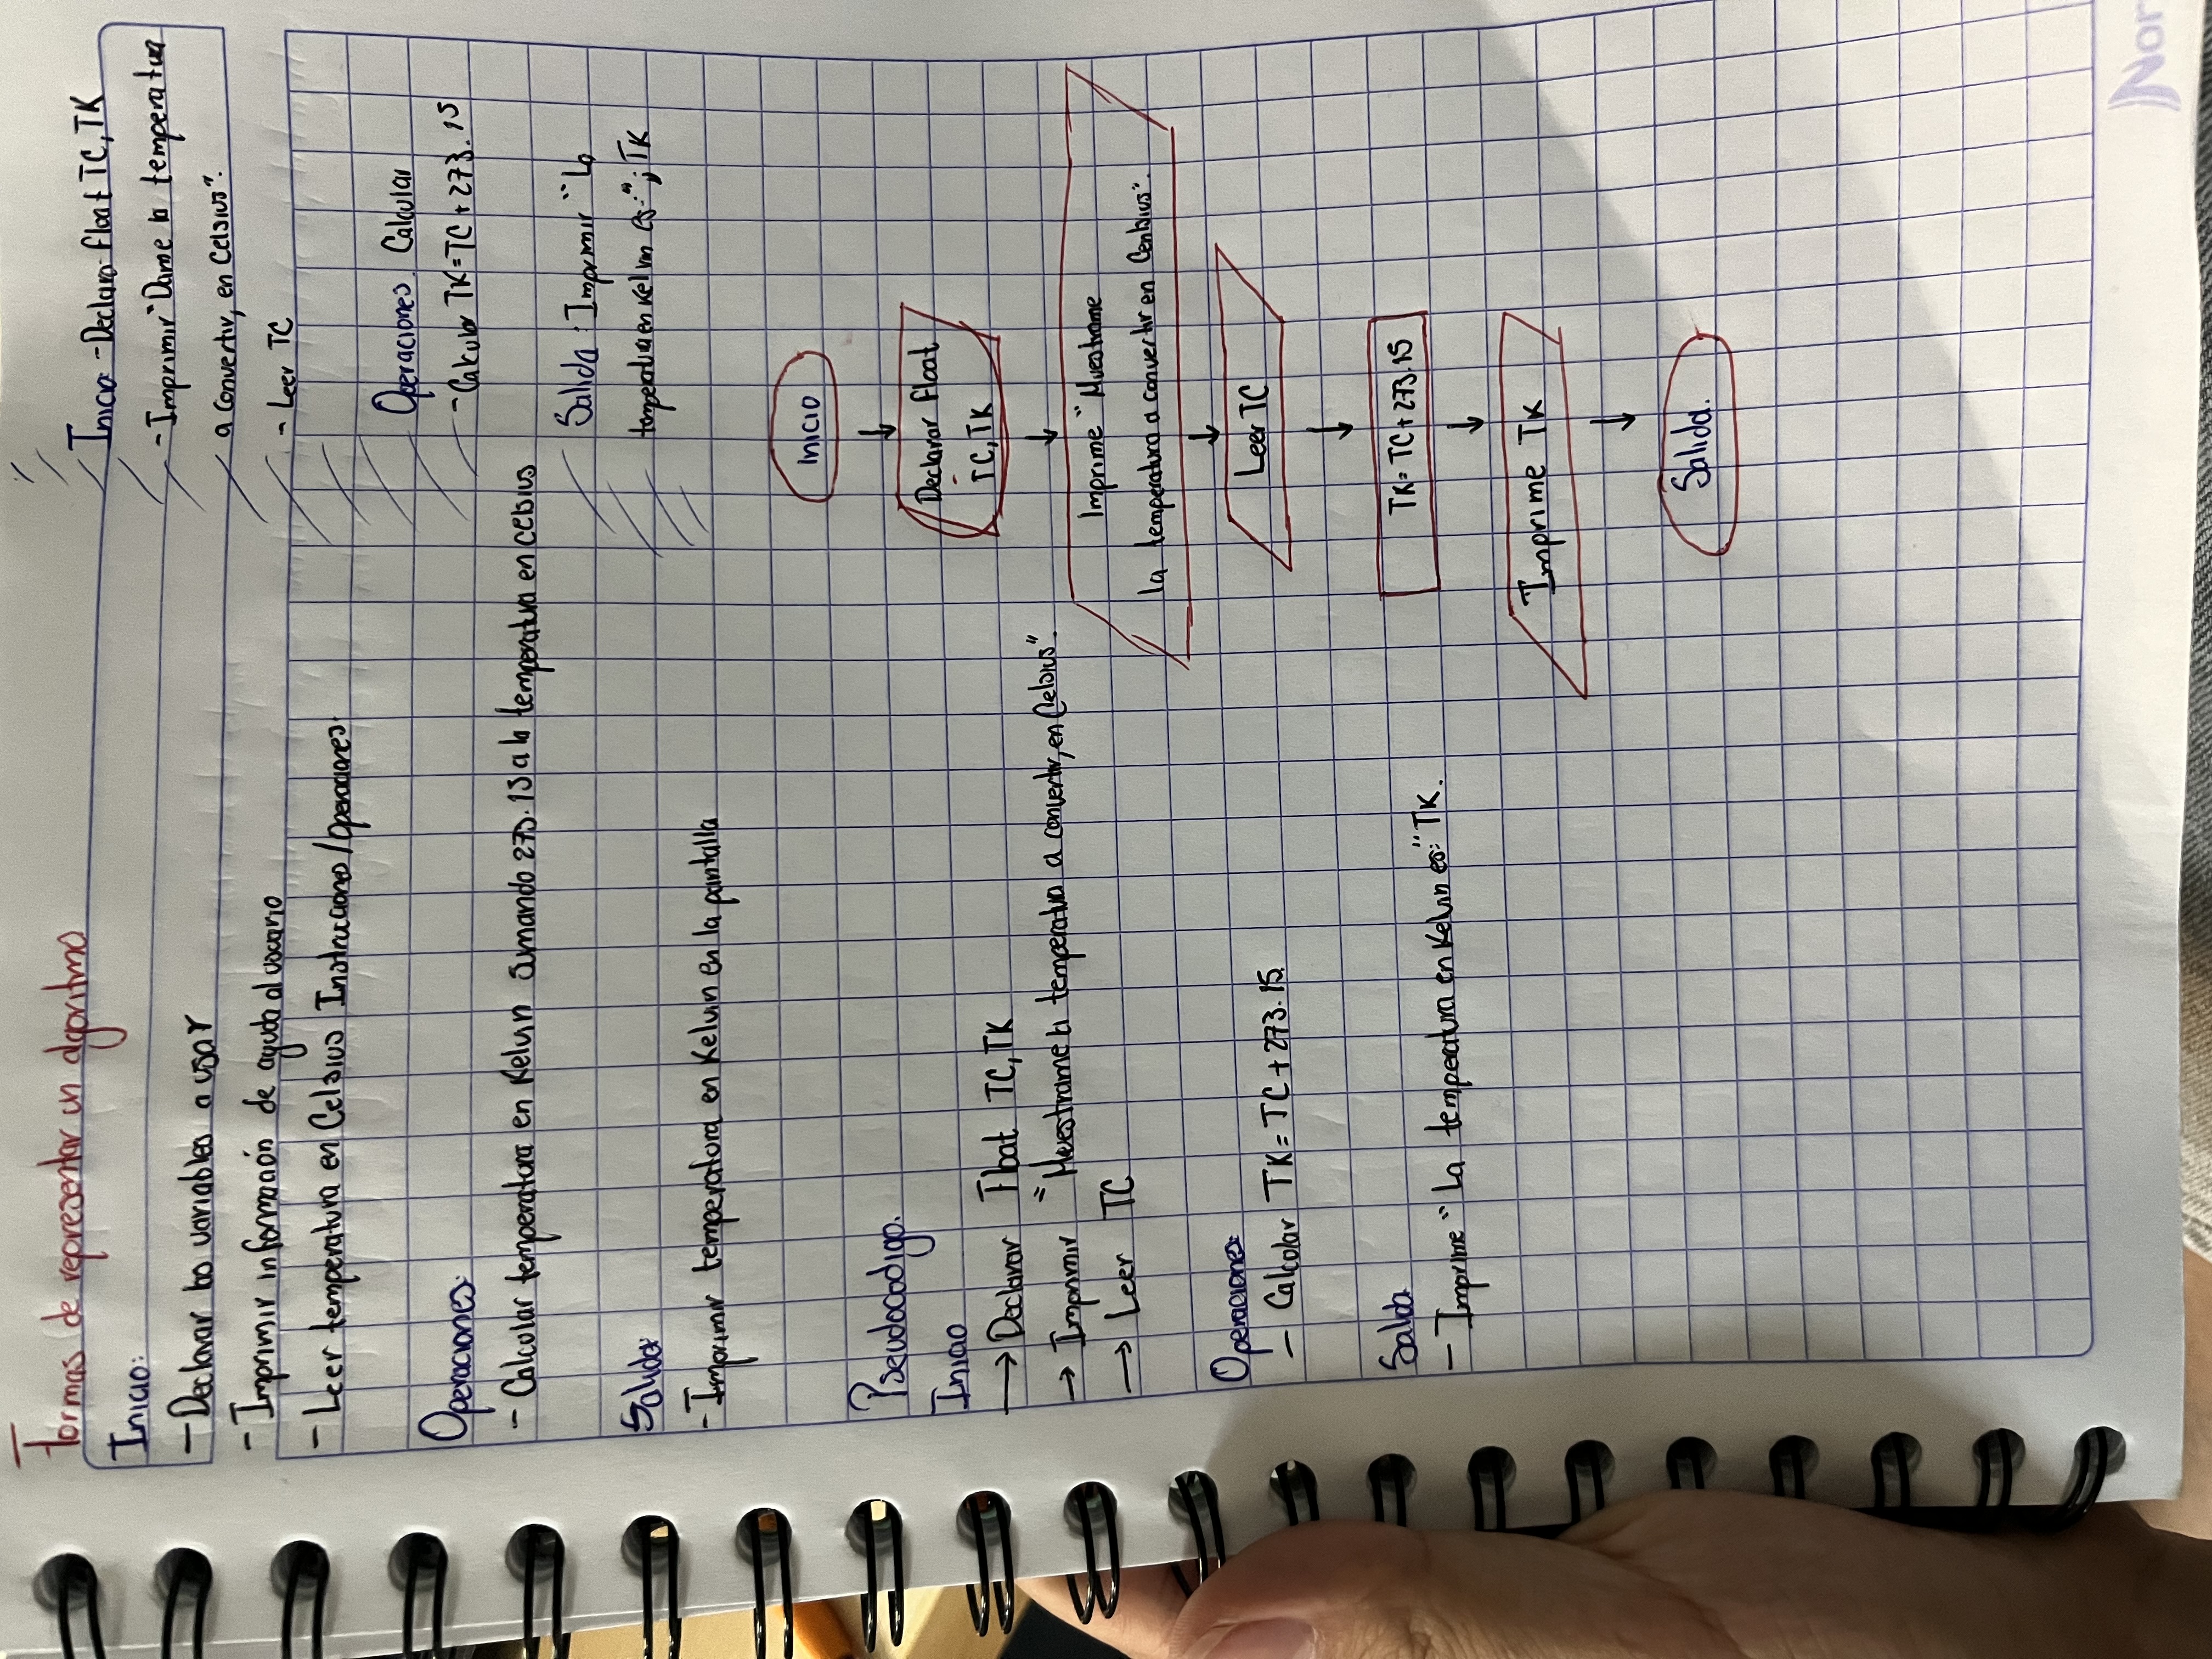 Formas de representar un algoritmo
Inicio:
- Declarar las variables a usar
- Imprimir información de ayuda al usuario
- Leer temperatura en Celsius Instrucciones/Operaciones.
Operaciones:
- Calcolar temperatura en Kelvin sumando 273.15 a la temperatura en celsius
Salida:
- Imprimir temperatura en Kelvin en la pantalla
Inicio - Declara float TC, TK
- Imprimir "Dame la temperatura
a convertir, en Celsius".
- Leer TC
Operaciones. Calcular
- Calcular TK = TC + 273.15
Salida: Imprimir "La
temperatura en Kelvin es:"; TK
Pseudocodigo.
Inicio
→ Declarar Float TC, TK
→ Imprimir "Muestrame la temperatura a convertir, en Celsius".
→ Leer TC
Operaciones
- Calcolar TK = TC + 273.15
Salida
- Imprime "La temperatura en Kelvin es:" TK.
Inicio
↓
Declarar Float
TC, TK
↓
Imprime "Muestrame
la temperatura a convertir en".
↓
Leer TC
↓
TK = TC + 273.15
↓
Imprime TK
↓
Salida.
Nor